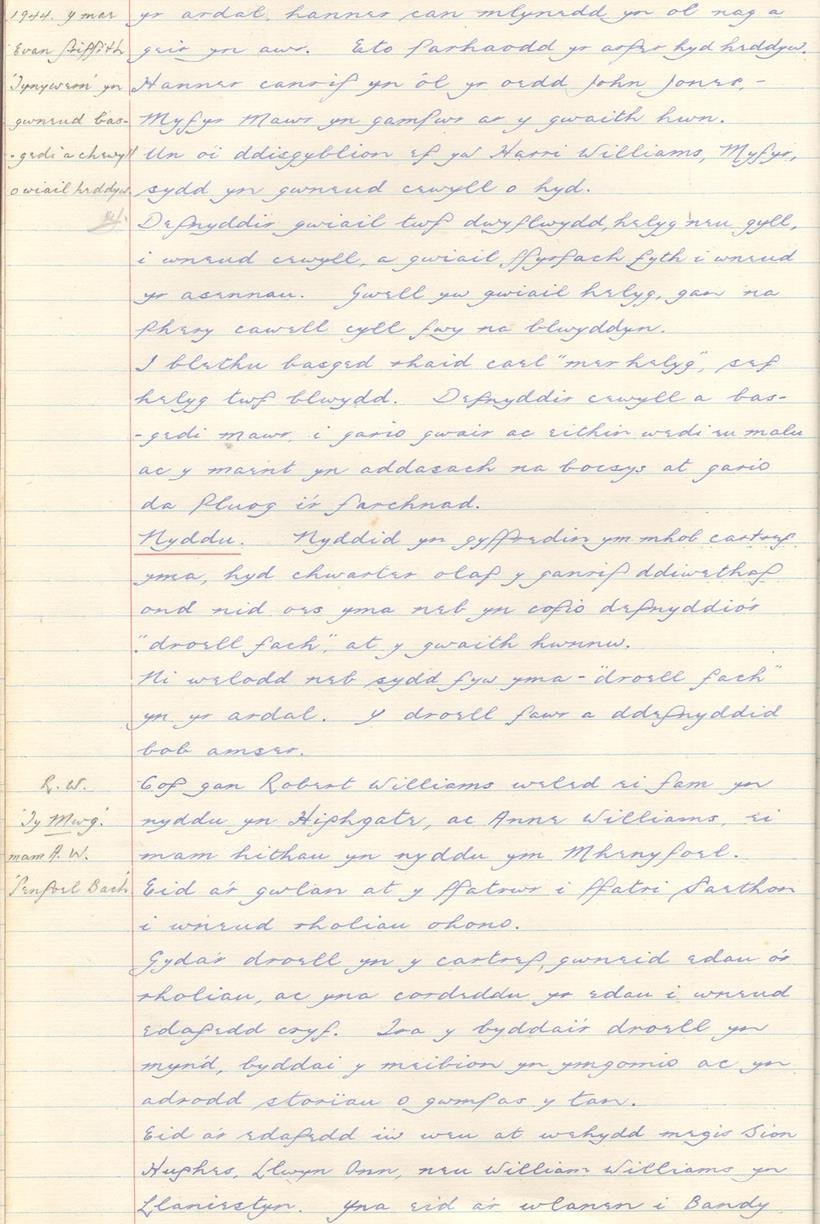 1944. y mae
Evan Griffith
'Tynywern' yn
gwneud bas-
-gedi a chewyll
o wiail heddyw.
yr ardal, hanner can mlynedd yn ol nag a
geir yn awr. Eto parhaodd yr arfer hyd heddyw.
Hanner canrif yn ôl yr oedd John Jones,-
Myfyr Mawr yn gampwr ar y gwaith hwn.
Un o'i ddisgyblion ef yw Harri Williams, Myfyr,
sydd yn gwneud cewyll o hyd.
Defnyddir gwiail twf dwyflwydd, helyg neu gyll,
i wneud cewyll, a gwiail ffyrfach fyth i wneud
yr asennau. Gwell yw gwiail helyg, gan na
phery cawell cyll fwy na blwyddyn.
I blethu basged rhaid cael "mer helyg", sef
helyg twf blwydd. Defnyddir cewyll a bas-
-gedi mawr, i gario gwair ac eithin wedi eu malu
ac y maent yn addasach na bocsys at gario
da pluog i'r farchnad.
Nyddu. Nyddid yn gyffredin ym mhob cartref
yma, hyd chwarter olaf y ganrif ddiwethaf
ond nid oes yma neb yn cofio defnyddio'r
"droell fach", at y gwaith hwnnw.
Ni welodd neb sydd fyw yma - "droell fach"
yn yr ardal. Y droell fawr a ddefnyddid
bob amser.
R. W.
'Ty Mwg'.
mam R. W.
'Penfoel Bach'
Cof gan Robert Williams weled ei fam yn
nyddu yn Highgate, ac Anne Williams, ei
mam hithau yn nyddu ym Mhenyfoel.
Eid a'r gwlan at y ffatrwr i ffatri Saethon
i wneud rholiau ohono.
Gyda'r droell yn y cartref, gwneid edau o'r
rholiau, ac yna cordeddu yr edau i wneud
edafedd cryf. Tra y byddai'r droell yn
mynd, byddai y meibion yn ymgomio ac yn
adrodd storïau o gwmpas y tan.
Eid a'r edafedd i'w weu at wehydd megis Sion
Hughes, Llwyn Onn, neu William Williams yn
Llaniestyn. Yna eid a'r wlanen i Bandy